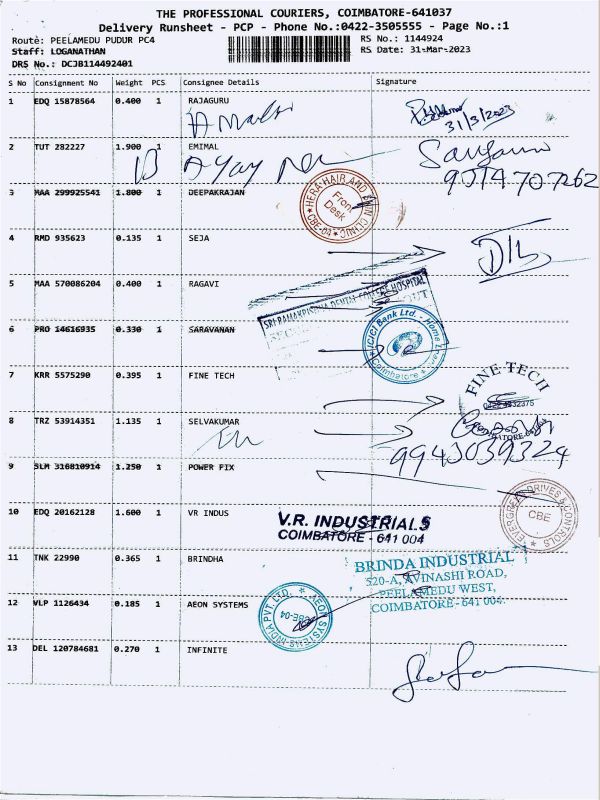 THE PROFESSIONAL COURIERS, COIMBATORE-641037
Delivery Runsheet - PCP - Phone No.:0422-3505555 - Page No.:1
Route: PEELAMEDU PUDUR PC4
RS No.: 1144924
Staff: LOGANATHAN
RS Date: 31-Mar-2023
DRS No.: DCJB114492401
S No Consignment No Weight PCS Consignee Details Signature
1 EDQ 15878564 0.400 1 RAJAGURU
31/3/2023
2 TUT 282227 1.900 1 EMIMAL
9014707262
3 MAA 299925541 1.800 1 DEEPAKRAJAN
HERA HAIR AND SKIN CLINIC CBE-04
Front Desk
4 RMD 935623 0.135 1 SEJA
5 MAA 570086204 0.400 1 RAGAVI
SRI RAMAKRISHNA DENTAL COLLEGE HOSPITAL
OUT
6 PRO 14616935 0.330 1 SARAVANAN
ICICI Bank Ltd. - Home
Coimbatore
7 KRR 5575290 0.395 1 FINE TECH
FINE TECH
8 TRZ 53914351 1.135 1 SELVAKUMAR
9943039324
9 SLM 316810914 1.250 1 POWER FIX
EVERGREEN DRIVES & CONTROLS
CBE
10 EDQ 20162128 1.600 1 VR INDUS
V.R. INDUSTRIALS
COIMBATORE - 641 004
11 TNK 22990 0.365 1 BRINDHA
BRINDA INDUSTRIAL
520-A, AVINASHI ROAD,
PEELAMEDU WEST,
COIMBATORE - 641 004.
12 VLP 1126434 0.185 1 AEON SYSTEMS
AEON SYSTEMS INDIA PVT. LTD.
CBE-04
13 DEL 120784681 0.270 1 INFINITE